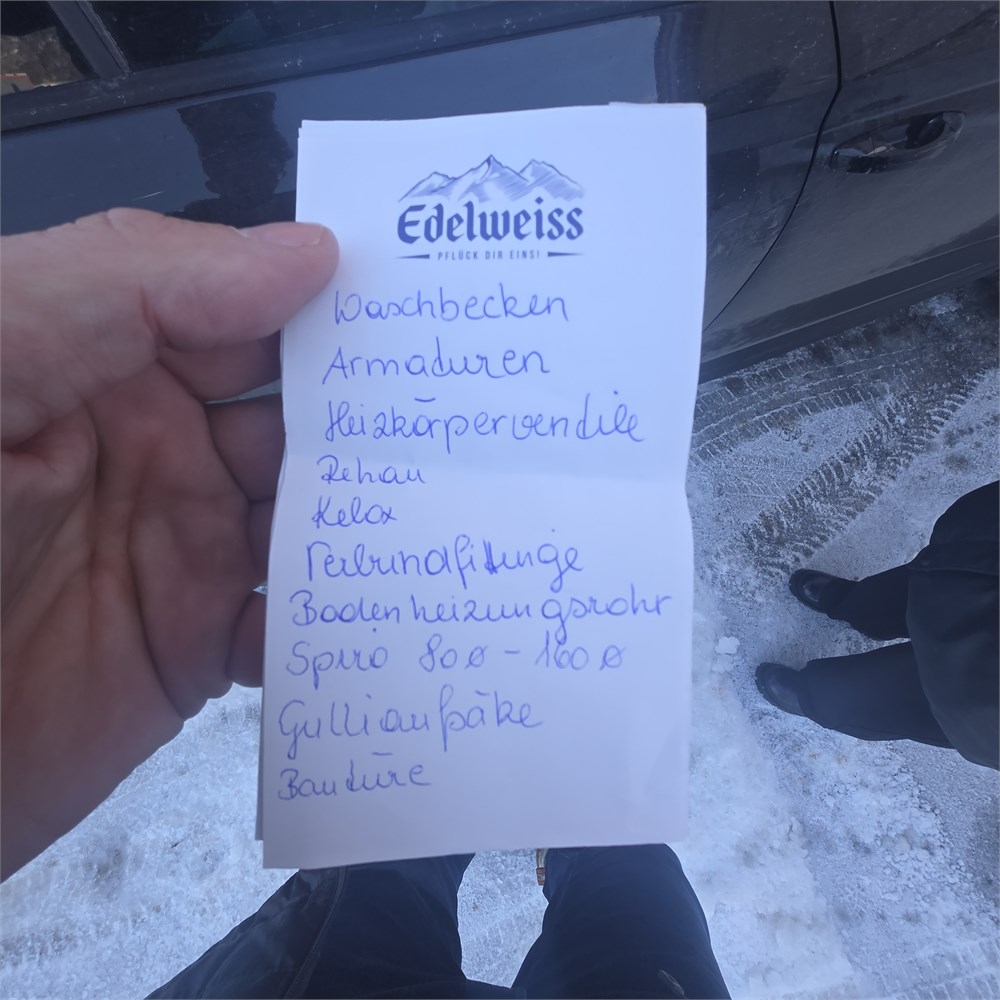 Edelweiss
PFLÜCK DIR EINS!
Waschbecken
Armaduren
Heizkörpervendile
Rehau
Kelox
Verbundfittinge
Bodenheizungsrohr
Spiro 80ø - 160ø
Gulliaufsäke
Bautüre